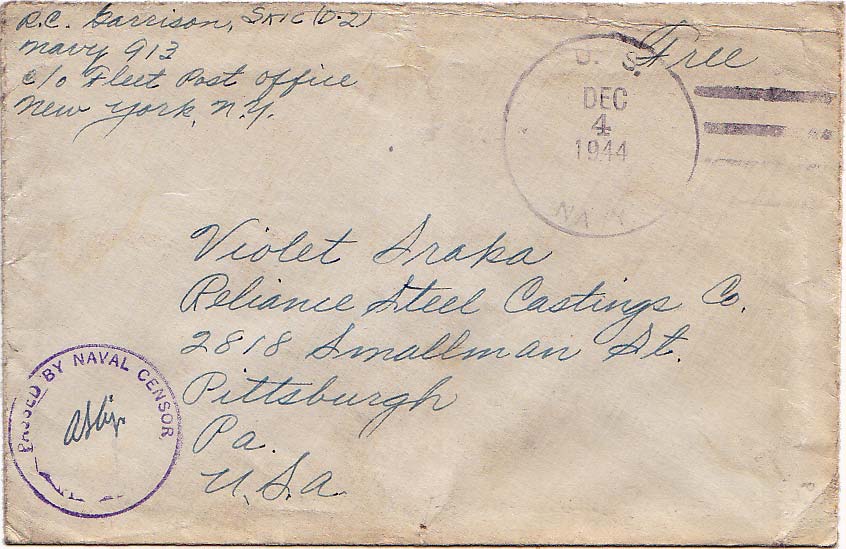 R.C. Garrison, SK1C (D-2)
Navy 913
c/o Fleet Post Office
New York, N.Y.
Free
U. S.
DEC
4
1944
NAVY
Violet
Reliance Steel Castings Co.
2818 Smallman St.
Pittsburgh
Pa.
U.S.A
PASSED BY NAVAL CENSOR